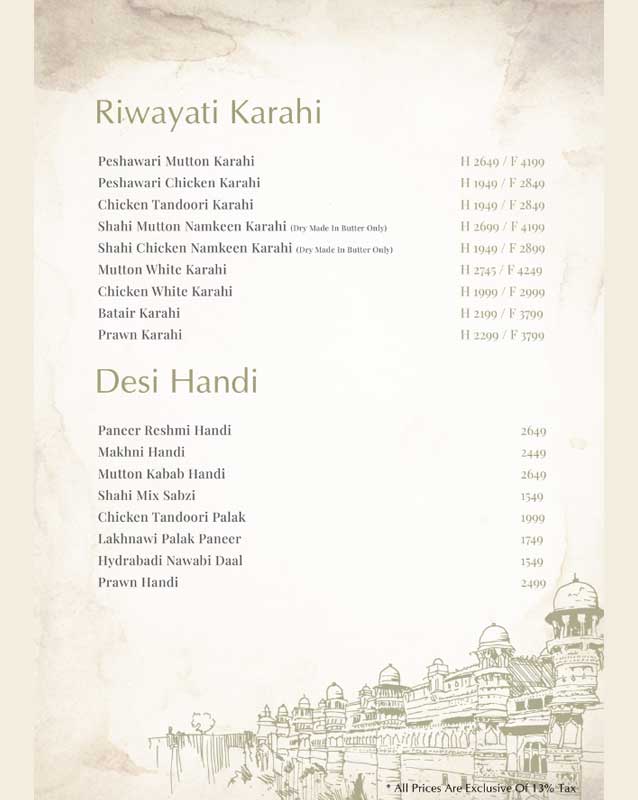 Riwayati Karahi
Peshawari Mutton Karahi H 2649 / F 4199
Peshawari Chicken Karahi H 1949 / F 2849
Chicken Tandoori Karahi H 1949 / F 2849
Shahi Mutton Namkeen Karahi (Dry Made In Butter Only) H 2699 / F 4199
Shahi Chicken Namkeen Karahi (Dry Made In Butter Only) H 1949 / F 2899
Mutton White Karahi H 2745 / F 4249
Chicken White Karahi H 1999 / F 2999
Batair Karahi H 2199 / F 3799
Prawn Karahi H 2299 / F 3799
Desi Handi
Paneer Reshmi Handi 2649
Makhni Handi 2449
Mutton Kabab Handi 2649
Shahi Mix Sabzi 1549
Chicken Tandoori Palak 1999
Lakhnawi Palak Paneer 1749
Hydrabadi Nawabi Daal 1549
Prawn Handi 2499
* All Prices Are Exclusive Of 13% Tax